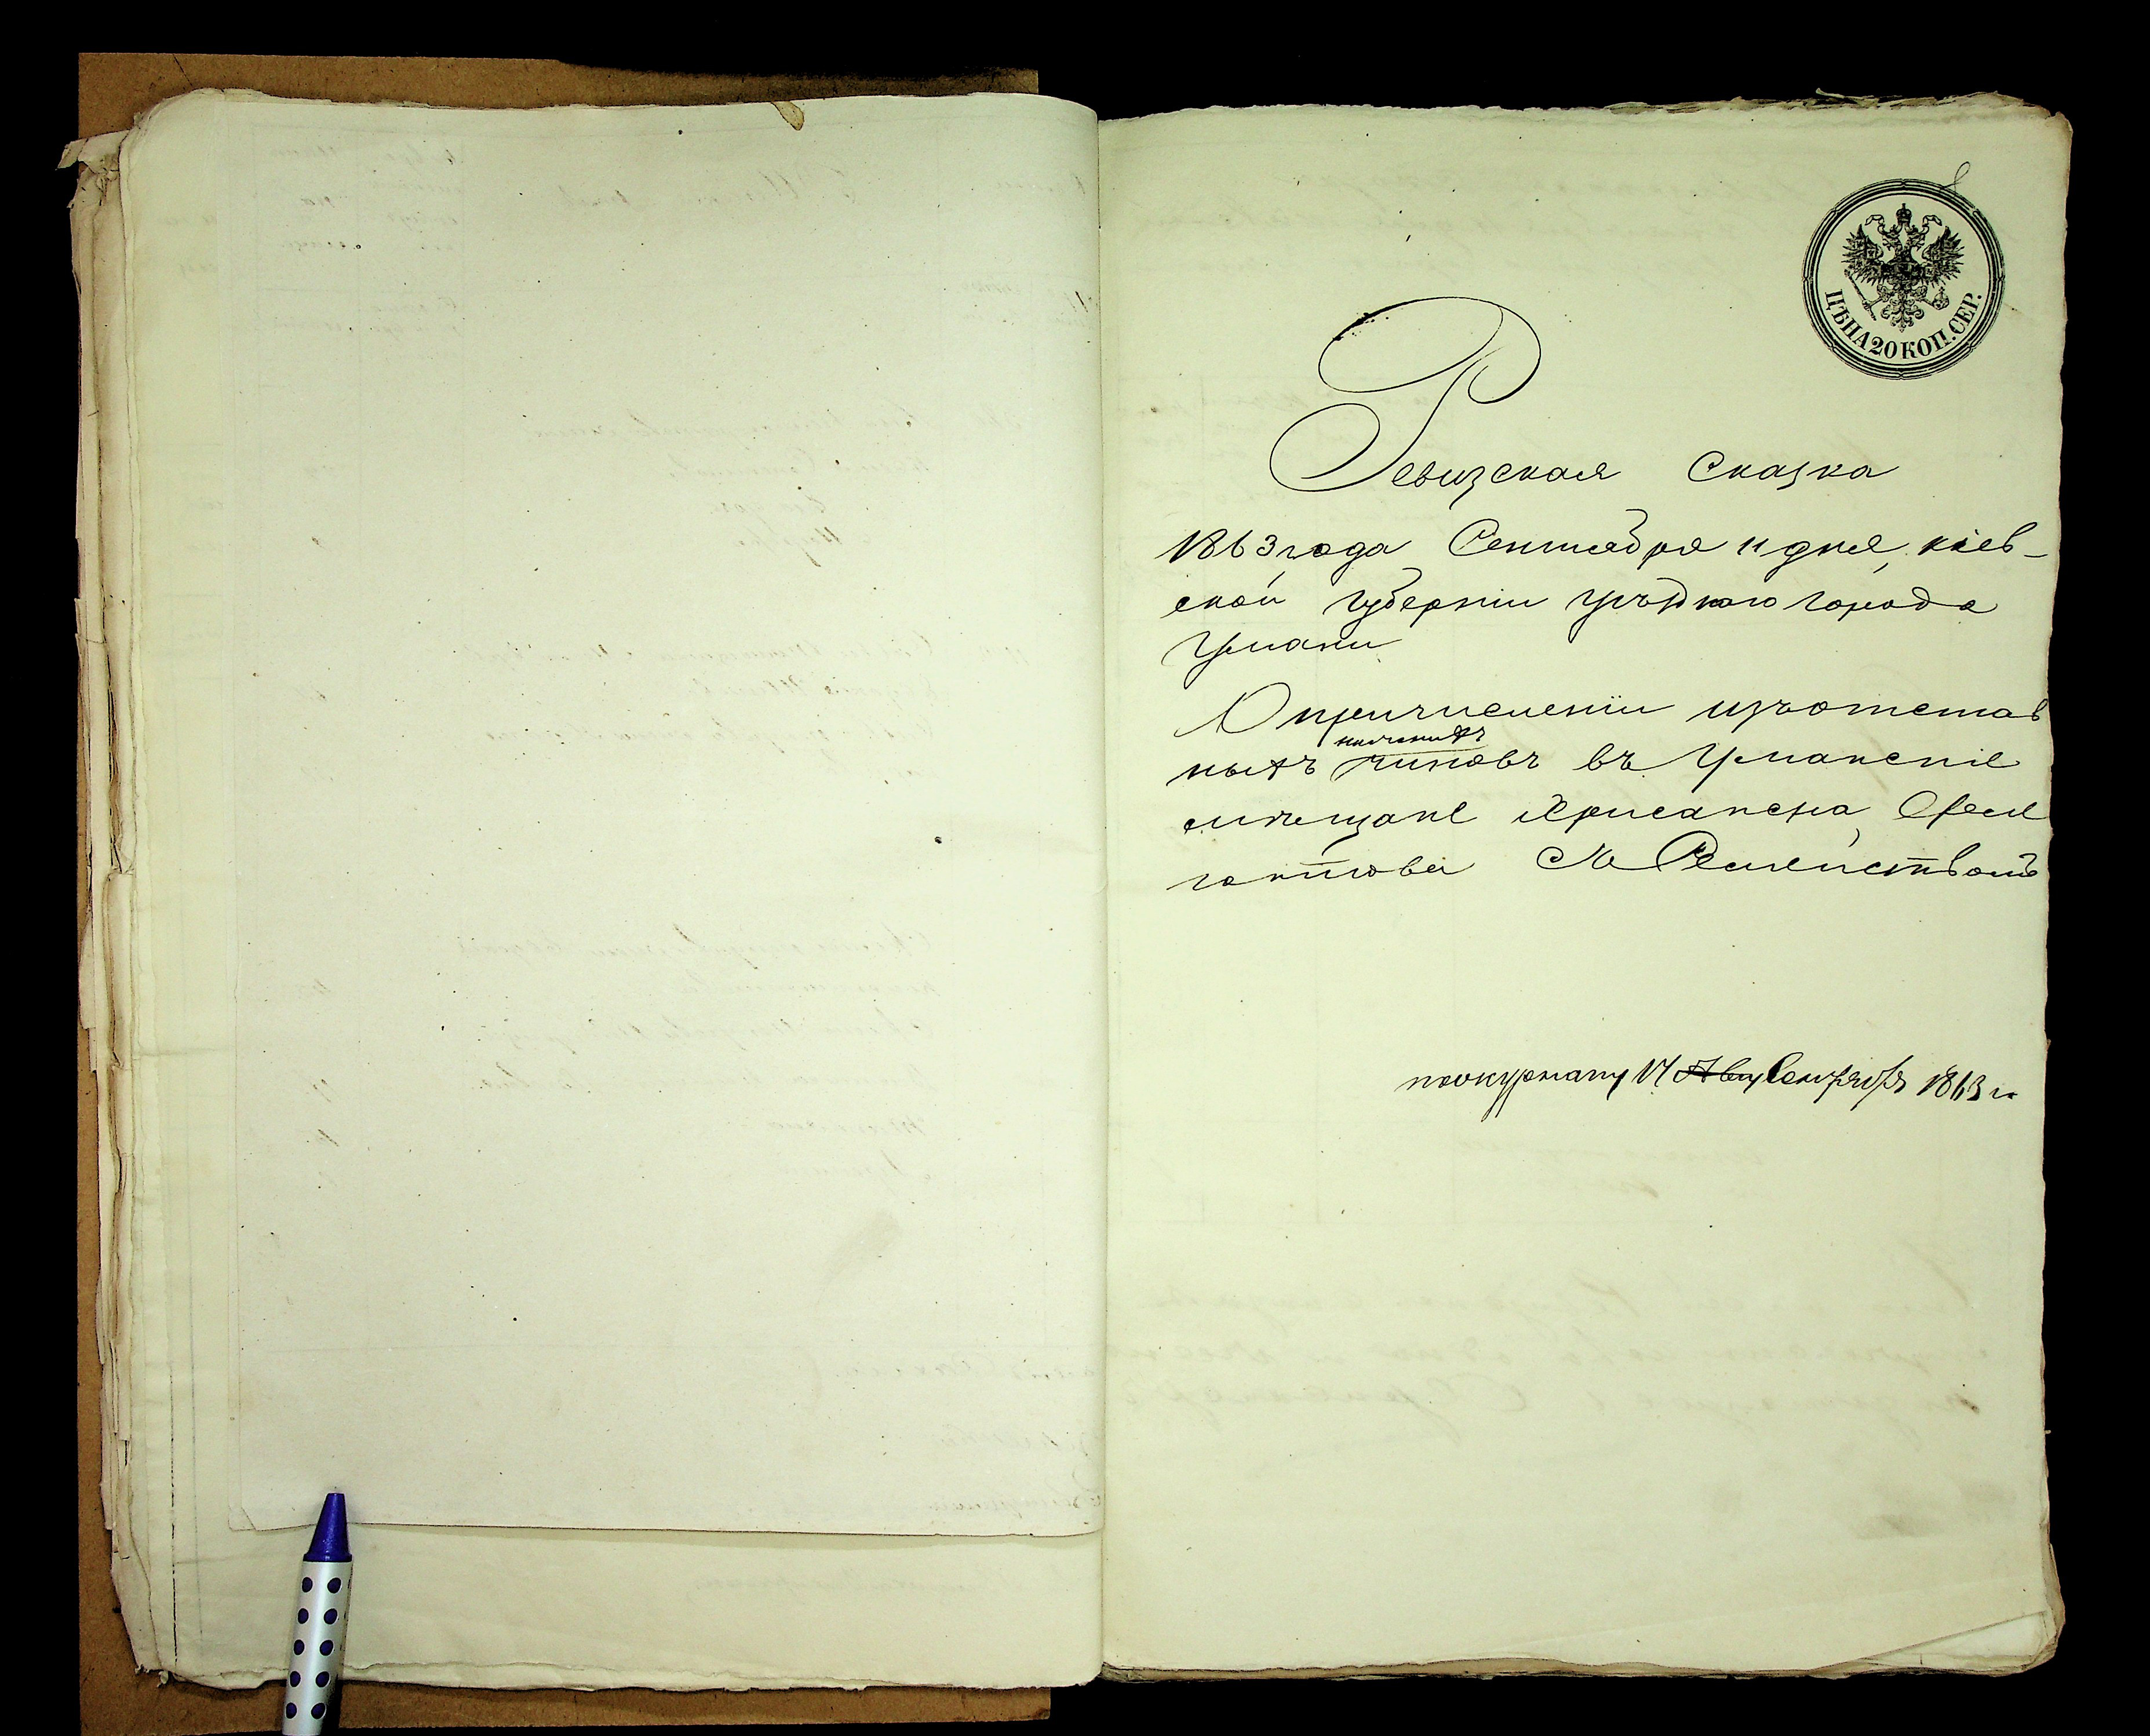 ЦѢНА 20 КОП. СЕР.
Ревизская Сказка
1863 года Сентября 11 дня, кіев-
ской губерніи уѣзднаго города
Умани
О причисленіи изъ отстав
нижнихъ
ныхъ чиновъ въ Уманскіе
мѣщане Хрисанфа
Семействомъ
по журналу 17 Авгу Сентября 1863 г.